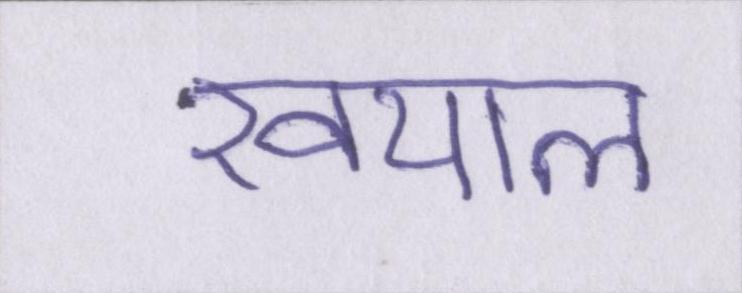 खयाल